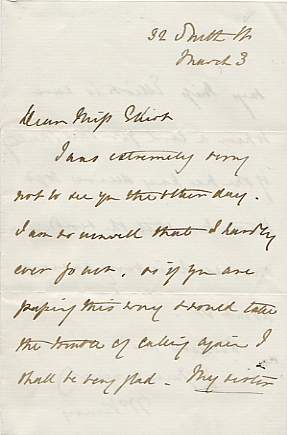 32 South St
March 3
Dear Miss Eliot
I was extremely sorry
not to see you the other day.
I am so unwell that I hardly
ever go out. as if you are
passing this way & would take
the trouble of calling again I
shall be very glad - My sister